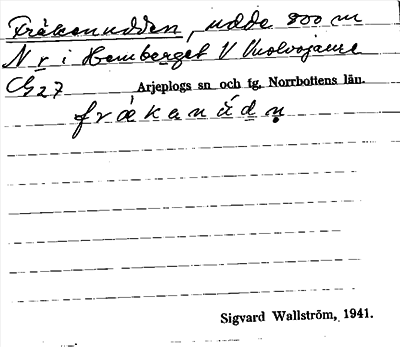 Fräkenudden, udde 800 m
N r i Hemberget V Vuolvojaure
Cg 27
Arjeplogs sn och tg. Norrbottens län.
fräkanúdn̥
Sigvard Wallström, 1941.